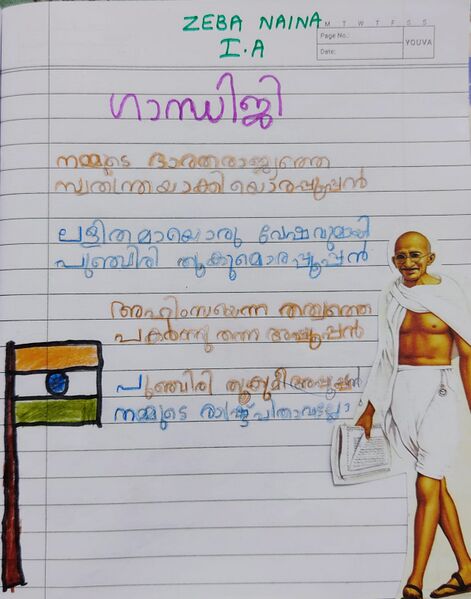 ZEBA NAINA
I.A
M T W T F S S
Page No.:
YOUVA
Date:
ഗാന്ധിജി
നമ്മുടെ ഭാരതരാജ്യത്തെ
സ്വതന്ത്രയാക്കിയൊരപ്പൂപ്പൻ
ലളിതമായൊരു വേഷവുമായി
പുഞ്ചിരി തൂകുമൊരപ്പൂപ്പൻ
അഹിംസയെന്ന തത്വത്തെ
പകർന്നു തന്ന അപ്പൂപ്പൻ
പുഞ്ചിരി തൂകുമീഅപ്പൂപ്പൻ
നമ്മുടെ രാഷ്ട്രപിതാവല്ലോ